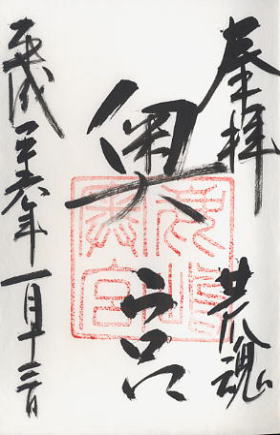 奉拝 荒魂
奥宮
平成二十六年一月十三日
鹿島
奥宮